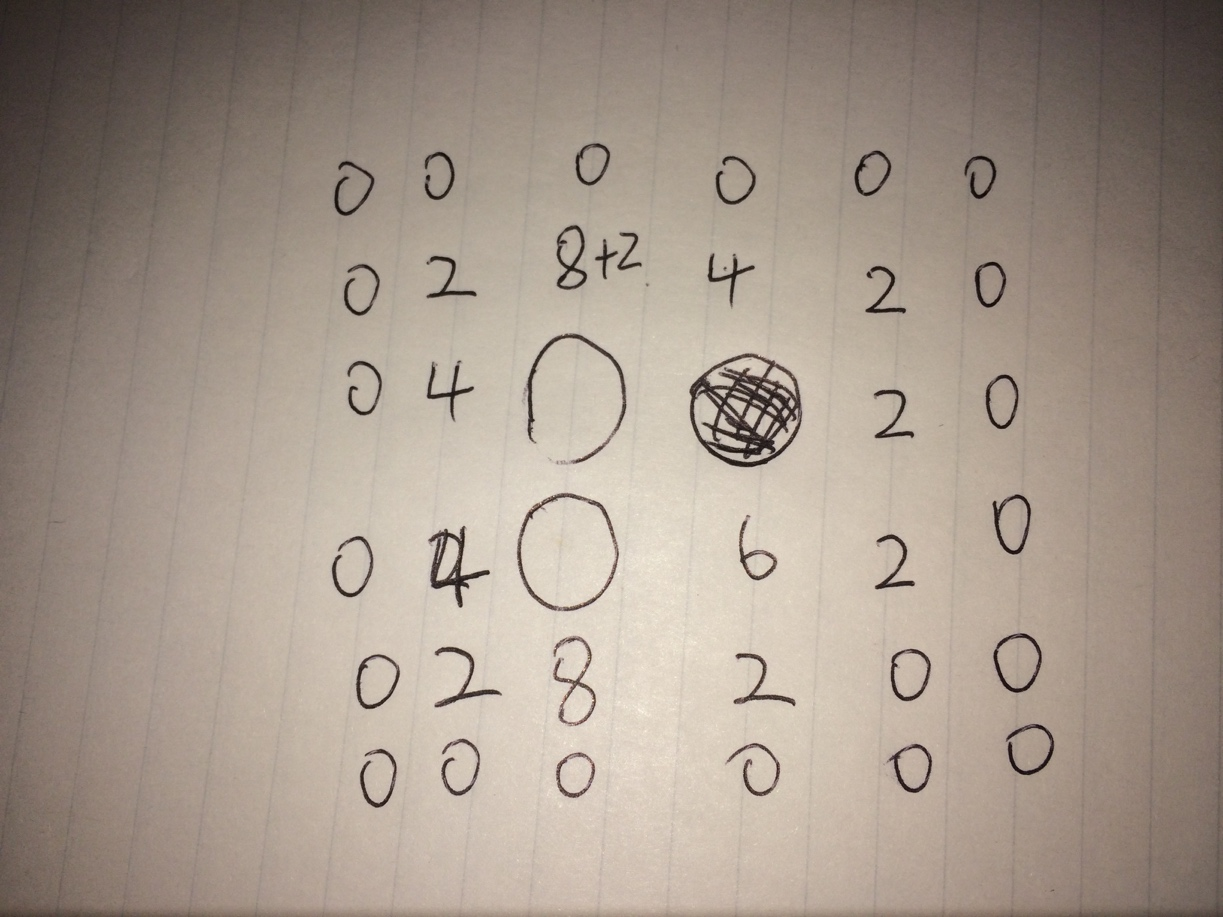 0 0 0 0 0 0
0 2 8+2 4 2 0
0 4 2 0
0 4 6 2 0
0 2 8 2 0 0
0 0 0 0 0 0